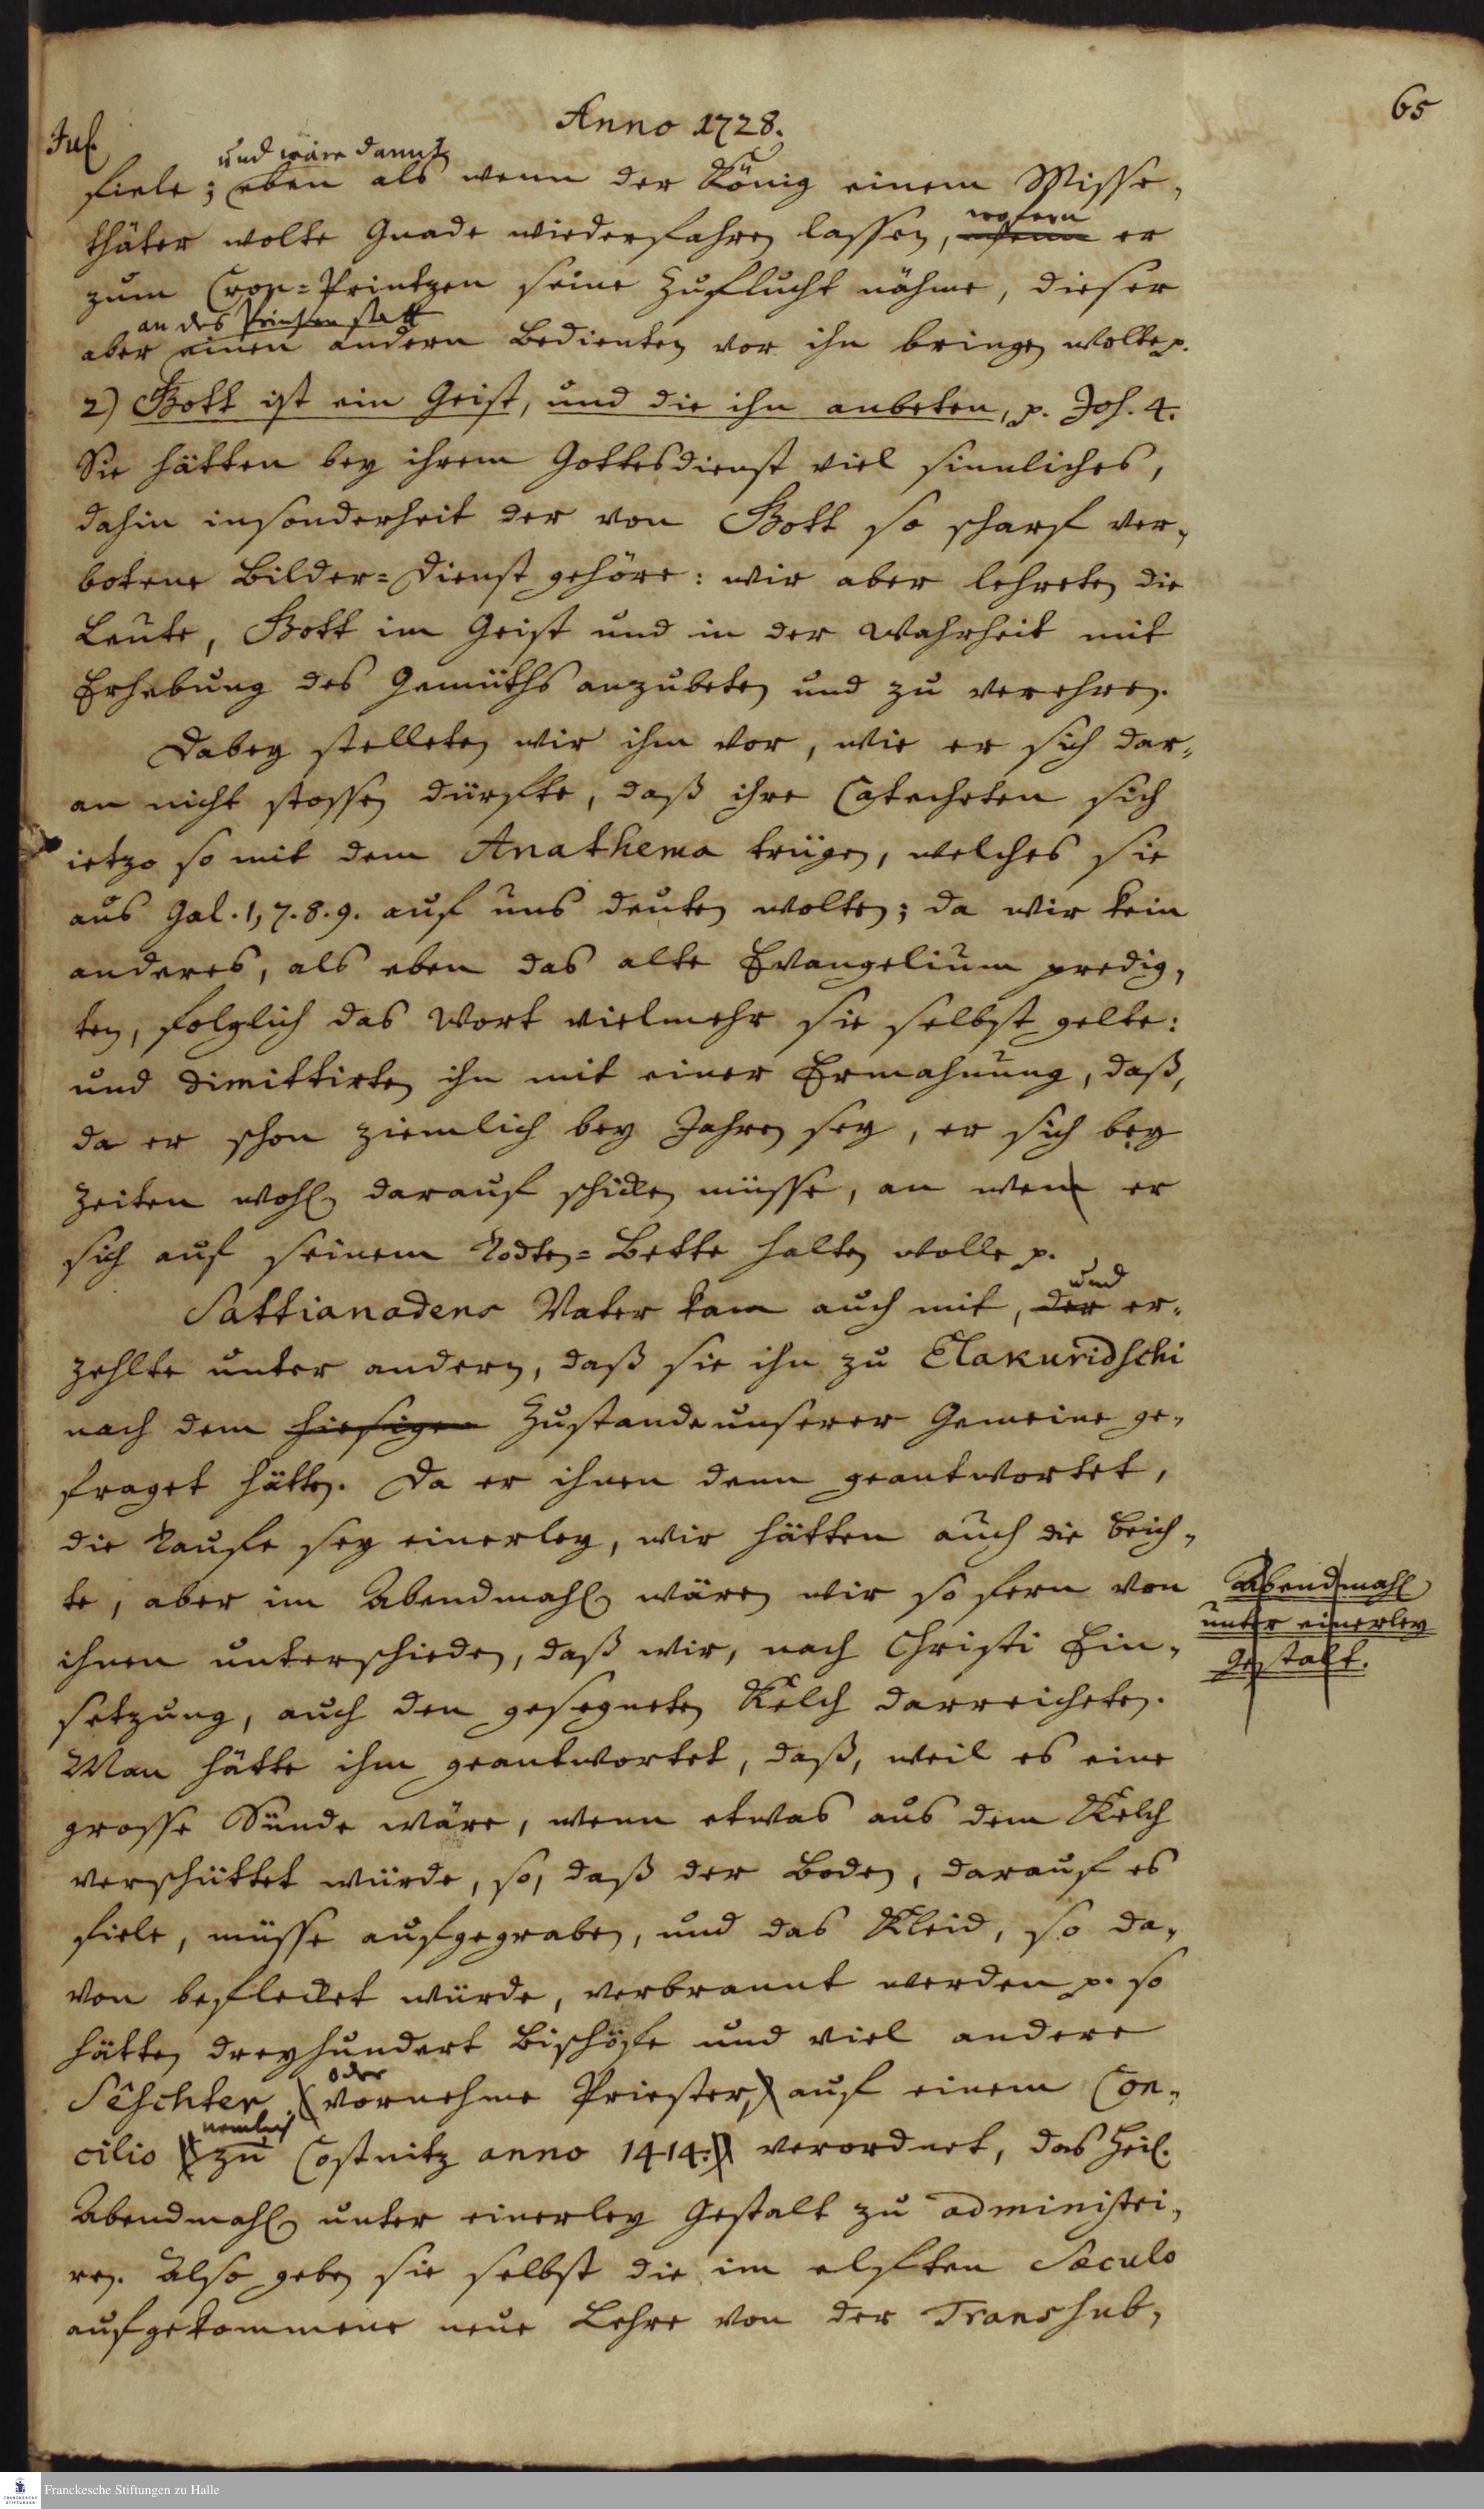 65
Anno 1728.
Jul.
und wäre damit
fiele; eben als wenn der König einem Misse-
thäter wolte Gnade wiederfahren lassen, wofern er
zum Cron=Printzen seine Zuflucht nähme, dieser
an des Printzen statt
aber einen andern Bedienten vor ihn bringen wolte p.
2) Gott ist ein Geist, und die ihn anbeten, p. Joh. 4.
Sie hätten bey ihrem Gottesdienst viel sinnliches,
dahin insonderheit der von Gott so scharf ver-
botene Bilder=Dienst gehöre: wir aber lehreten die
Leute, Gott im Geist und in der Wahrheit mit
Erhebung des Gemüths anzubeten und zu verehren.
Dabey stelleten wir ihm vor, wie er sich dar-
an nicht stossen dürfte, daß ihre Catecheten sich
ietzo so mit dem Anathema trügen, welches sie
aus Gal. 1, 7. 8. 9. auf uns deuten wolten; da wir kein
anderes, als eben das alte Evangelium predig-
ten, folglich das Wort vielmehr sie selbst gelte:
und dimittirten ihn mit einer Ermahnung, daß,
da er schon ziemlich bey Jahren sey, er sich bey
Zeiten wohl darauf schicken müsse, an wem er
sich auf seinem Todten=Bette halten wolle p.
und
Sattianadens Vater kam auch mit, der er-
zehlte unter andern, daß sie ihn zu Elakuridschi
nach dem hiesigen Zustande unserer Gemeine ge-
fraget hätten. Da er ihnen denn geantwortet,
die Taufe sey einerley, wir hätten auch die Beich-
te, aber im Abendmahl wären wir so fern von
ihnen unterschieden, daß wir, nach Christi Ein-
setzung, auch den gesegneten Kelch darreicheten.
Abendmahl
unter einerley
Gestalt.
Man hätte ihm geantwortet, daß, weil es eine
grosse Sünde wäre, wenn etwas aus dem Kelch
verschüttet würde, so, daß der Boden, darauf es
fiele, müsse aufgegraben, und das Kleid, so da-
von beflecket würde, verbrannt werden p. so
hätten dreyhundert Bischöfe und viel andere
oder
Sêschter (vornehme Priester,) auf einem Con-
nemlich
cilio (zu Costnitz anno 1414.) verordnet, das Heil.
Abendmahl unter einerley Gestalt zu administri-
ren. Also geben sie selbst die im elften Sæculo
aufgekommene neue Lehre von der Transsub-
Franckesche Stiftungen zu Halle